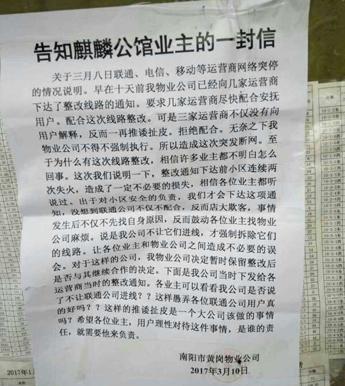 告知麒麟公馆业主的一封信
关于三月八日联通、电信、移动等运营商网络突停
的情况说明。早在十天前我物业公司已经向几家运营商
下达了整改线路的通知。要求几家运营商尽快配合安抚
用户。配合这次线路整改。可是三家运营商不仅没有向
用户解释，反而一再推诿扯皮，拒绝配合。无奈之下我
物业公司不得不强制执行。所以造成这次突发断网。至
于为什么有这次线路整改，相信许多业主都不明白怎么
回事。这次我们说明一下，整改通知下达前小区连续两
次失火，造成了一定不必要的损失，相信各位业主都听
说过。出于对小区安全的负责，我们才会下达这项通
知，没想到联通公司不仅不配合，反而店大欺客。事情
发生后不仅不先找自身原因，反而鼓动各位业主找物业
公司麻烦。说是我公司不让它们进线，才强制拆除它们
的线路。让各位业主和物业公司之间造成不必要的误
会。对于这样的公司，我物业公司决定暂时保留整改后
是否与其继续合作的决定。下面是我公司当时下发给各
运营商当时的整改通知。各业主可以看看我公司是否说
了不让联通公司进线？？？这样愚弄各位联通公司用户真
的好吗？？？这样的推诿扯皮是一个大公司该做的事情
吗？希望各位业主，用户理性对待这件事情，是谁的责
任，就需要他来负责。
南阳市黄岗物业公司
2017年3月10日